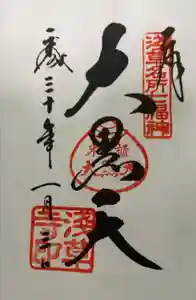 奉拝
浅草名所七福神
大黒天
平成三十年一月三日
浅草寺印